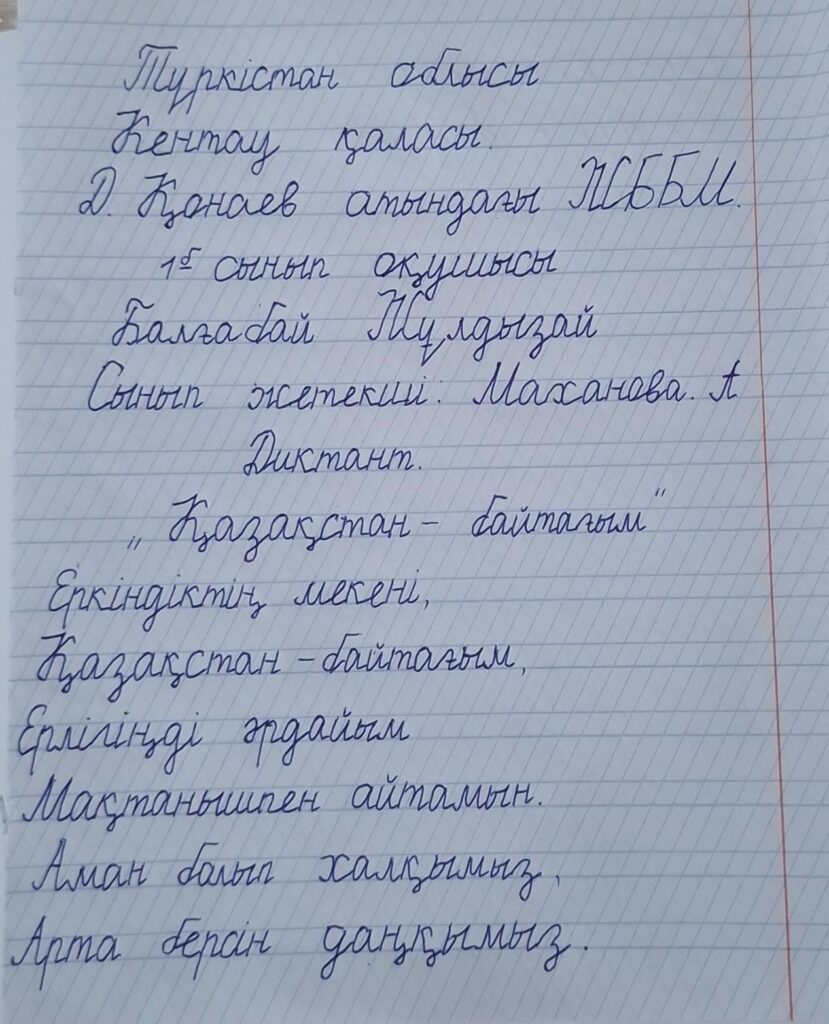 Түркістан облысы
Кентау қаласы.
Д. Қонаев атындағы ЖББМ.
1б сынып оқушысы
Балғабай Жұлдызай
Сынып жетекші: Маханова. А
Диктант.
„Қазақстан - байтағым"
Еркіндіктің мекені,
Қазақстан - байтағым,
Ерлігіңді әрдайым
Мақтанышпен айтамын.
Аман болып халқымыз,
Арта берсін даңқымыз.